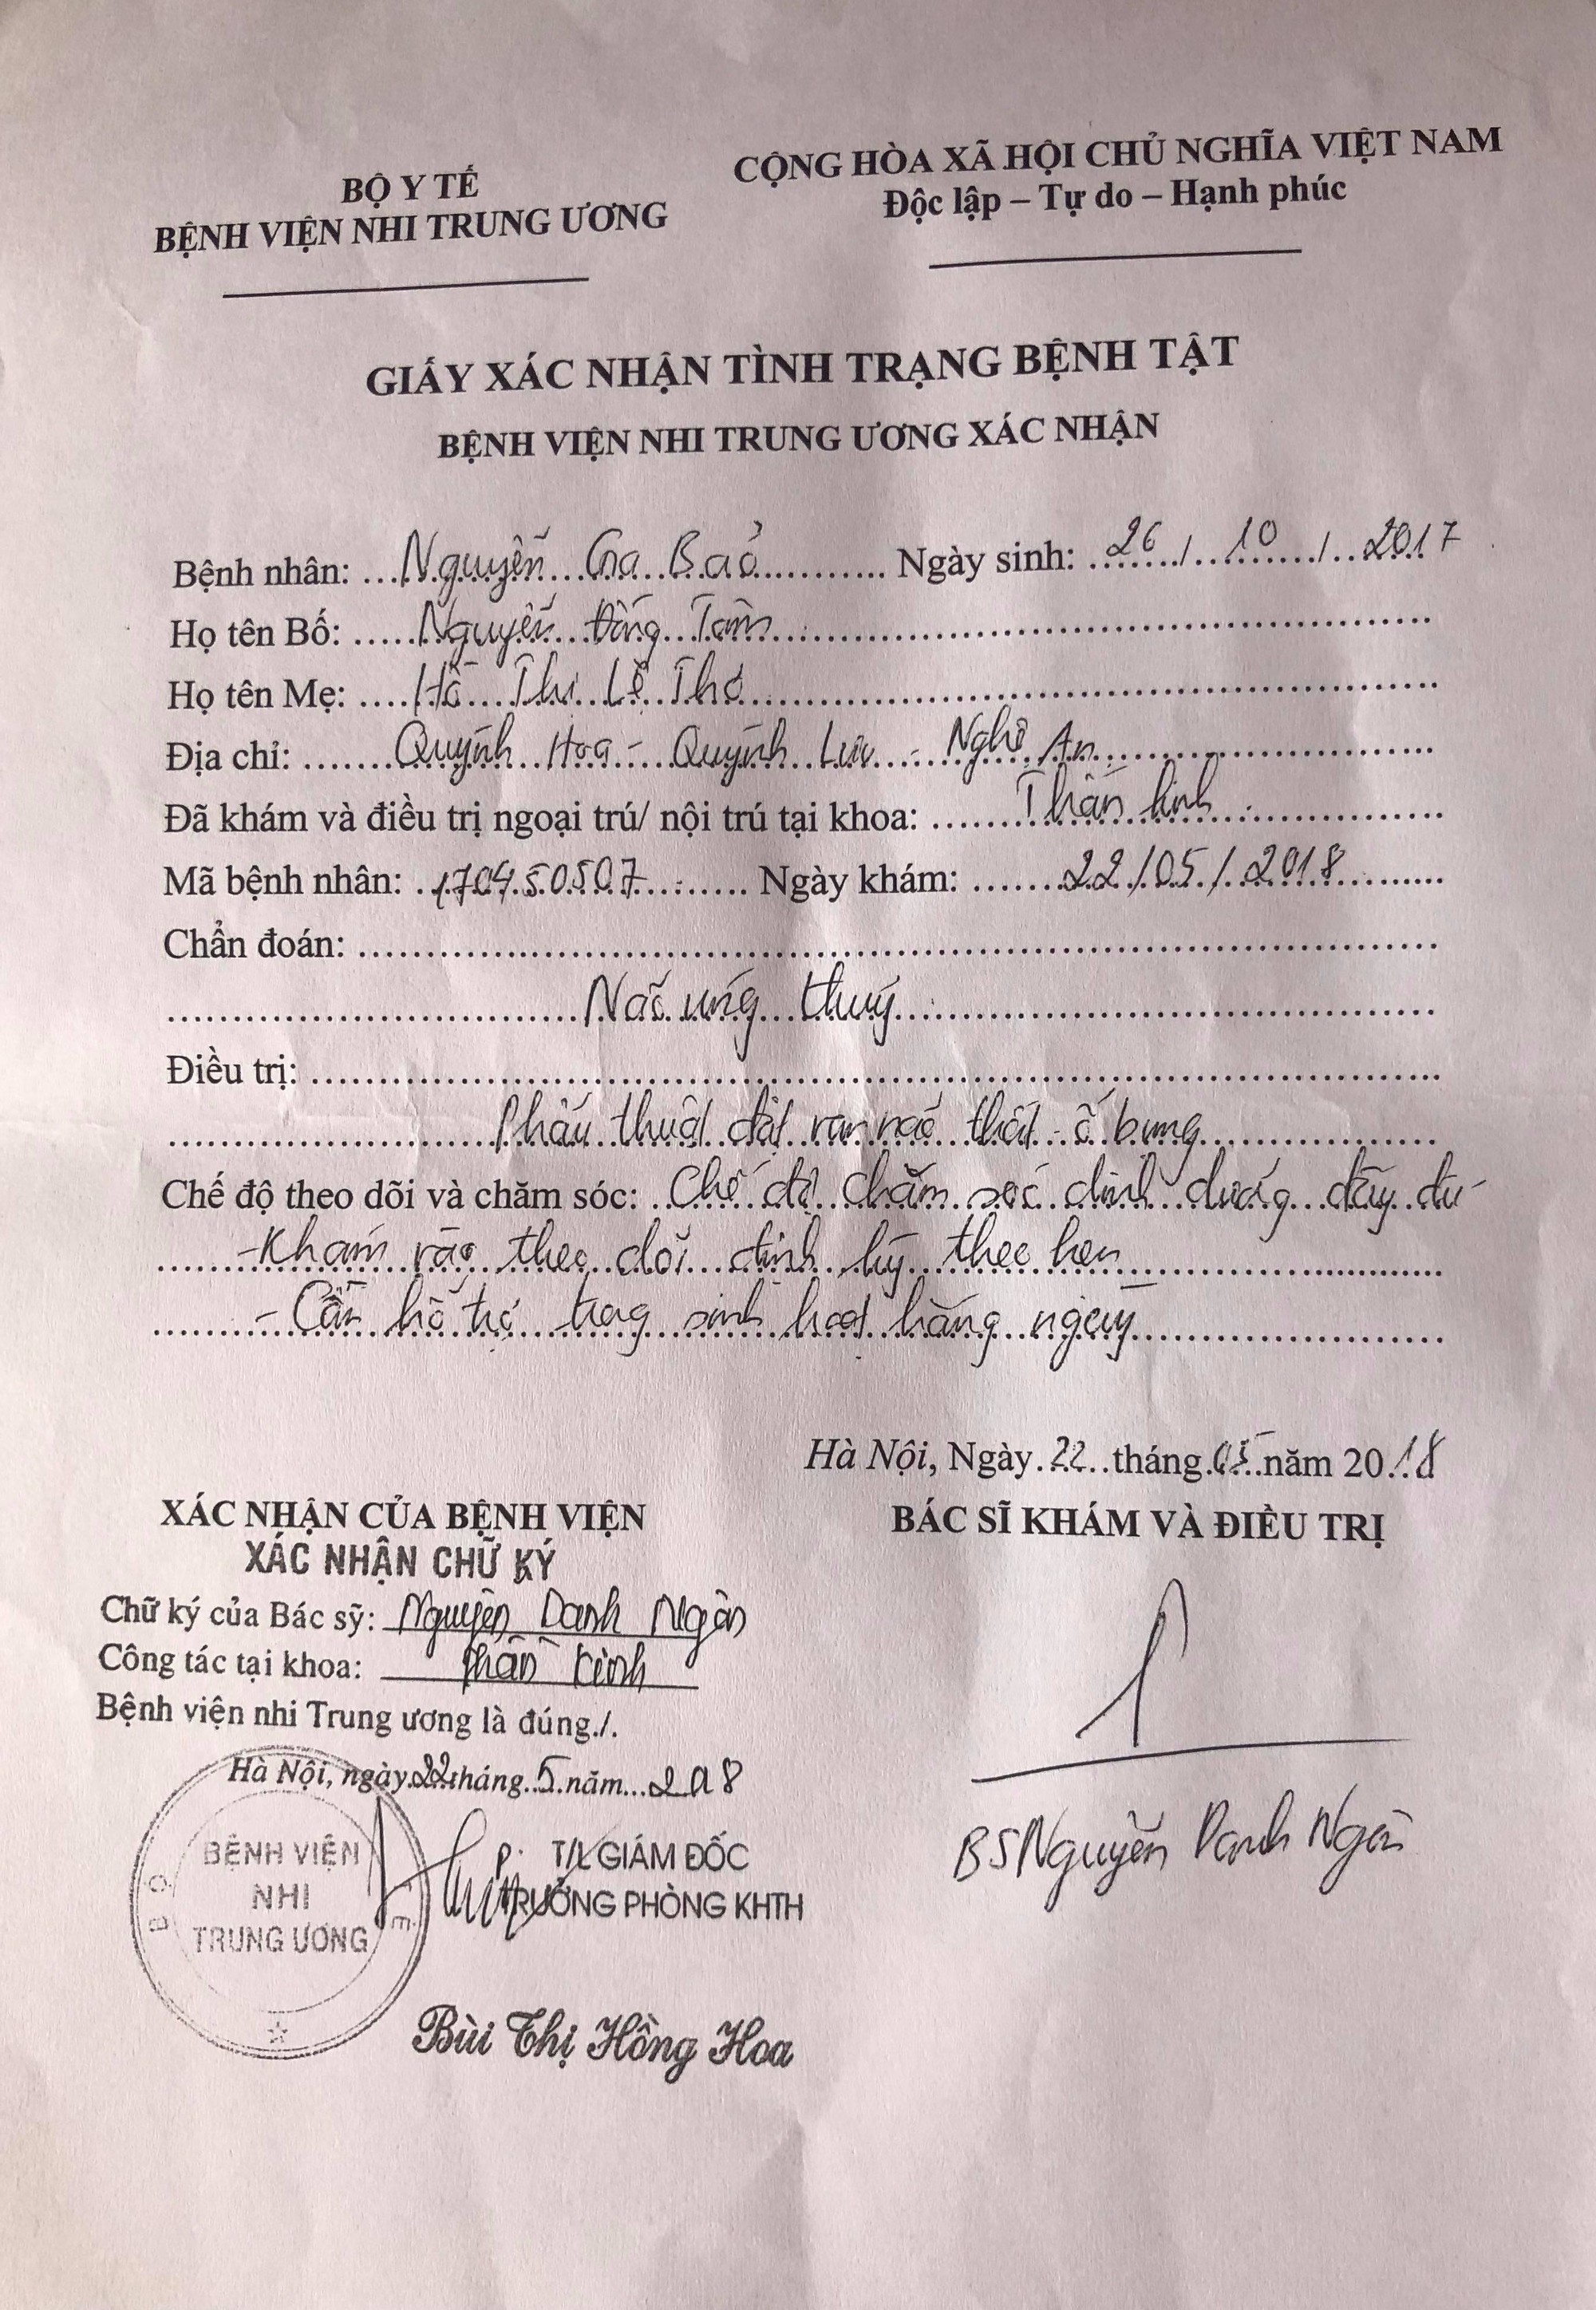 BỘ Y TẾ
BỆNH VIỆN NHI TRUNG ƯƠNG
CỘNG HÒA XÃ HỘI CHỦ NGHĨA VIỆT NAM
Độc lập – Tự do – Hạnh phúc
GIẤY XÁC NHẬN TÌNH TRẠNG BỆNH TẬT
BỆNH VIỆN NHI TRUNG ƯƠNG XÁC NHẬN
Bệnh nhân: Nguyễn Gia Bảo Ngày sinh: 26 / 10 / 2017
Họ tên Bố: Nguyễn Đăng Tâm
Họ tên Mẹ: Hồ Thị Lệ Thơ
Địa chỉ: Quỳnh Hoa - Quỳnh Lưu - Nghệ An
Đã khám và điều trị ngoại trú/ nội trú tại khoa: Thần kinh
Mã bệnh nhân: 170450507 Ngày khám: 22/05/2018
Chẩn đoán:
Não úng thuỷ
Điều trị:
Phẫu thuật đặt van não thất - ổ bụng
Chế độ theo dõi và chăm sóc: Chế độ chăm sóc dinh dưỡng đầy đủ
- Khám và theo dõi định kỳ theo hẹn
- Cần hỗ trợ trong sinh hoạt hàng ngày
Hà Nội, Ngày 22 tháng 05 năm 2018
XÁC NHẬN CỦA BỆNH VIỆN
BÁC SĨ KHÁM VÀ ĐIỀU TRỊ
XÁC NHẬN CHỮ KÝ
Chữ ký của Bác sỹ: Nguyễn Danh Ngân
Công tác tại khoa: Thần Kinh
Bệnh viện nhi Trung ương là đúng./.
Hà Nội, ngày 22 tháng 5 năm 2018
BỆNH VIỆN
NHI
TRUNG ƯƠNG
P. T/L GIÁM ĐỐC
TRƯỞNG PHÒNG KHTH
BS Nguyễn Danh Ngân
Bùi Thị Hồng Hoa